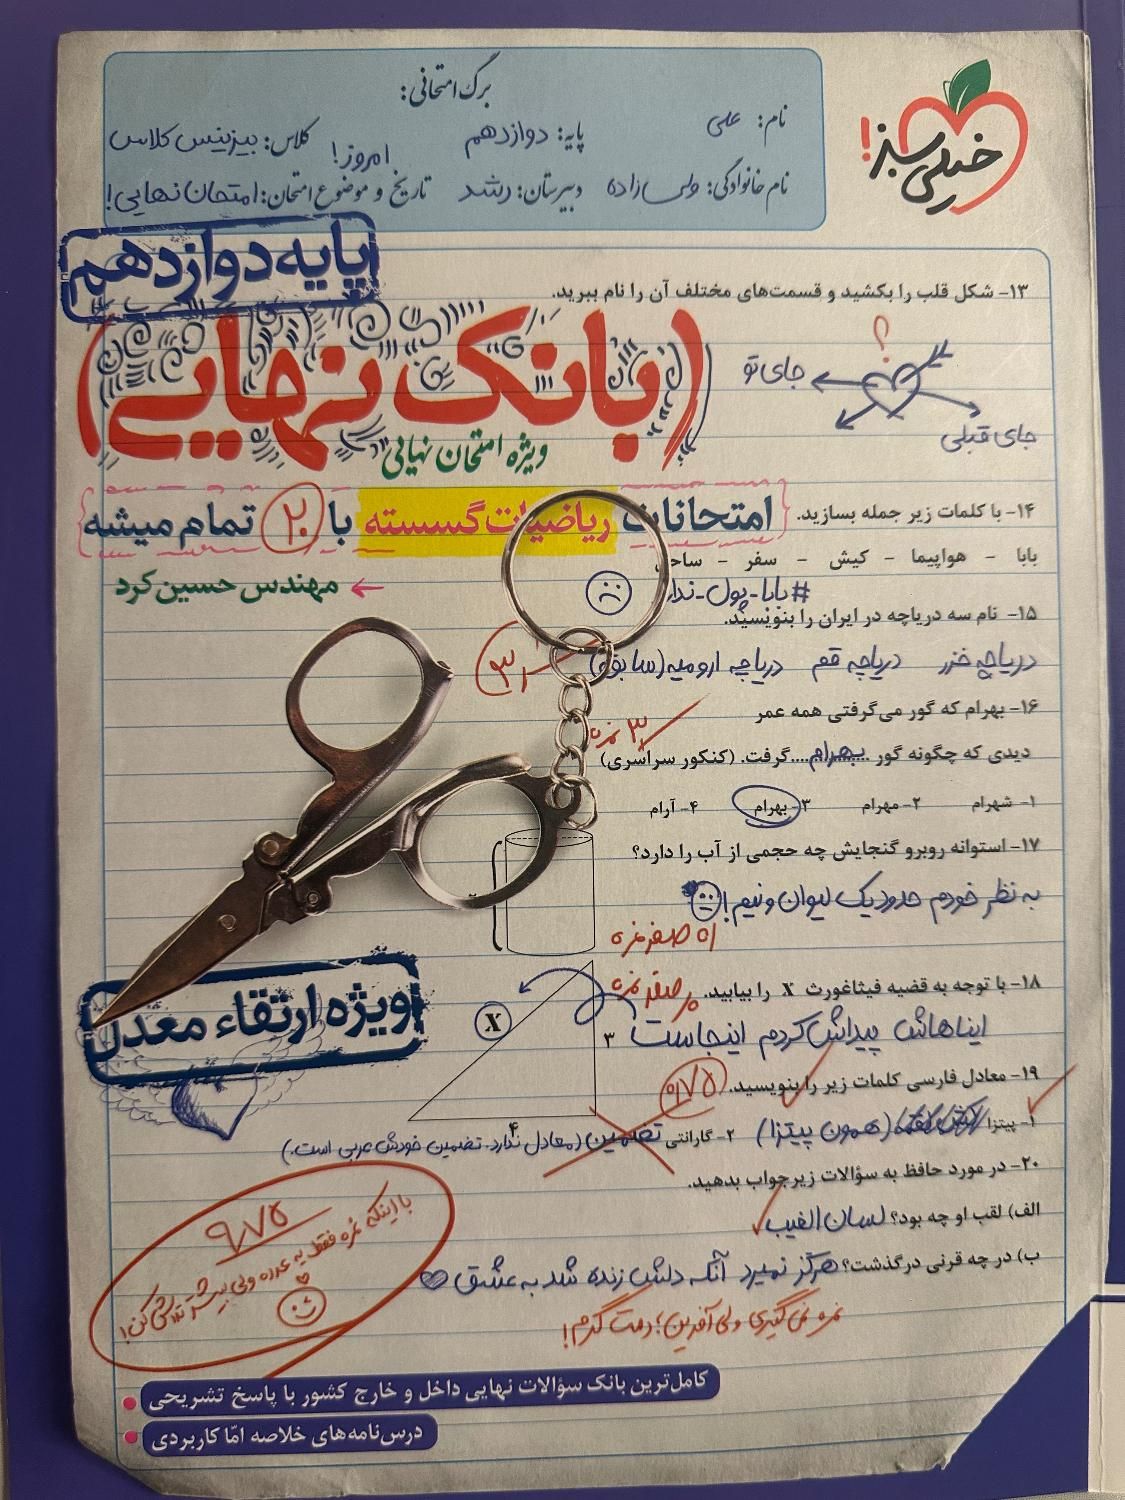 برگ امتحانی:
نام: علی
پایه: دوازدهم
کلاس: بیزینس کلاس
نام خانوادگی: ولی‌زاده
دبیرستان: رشد
تاریخ و موضوع امتحان: امتحان نهایی!
امروز!
خیلی سبز!
پایه دوازدهم
(بانک نهایی)
ویژه امتحان نهایی
امتحانات ریاضیات گسسته با ۲۰ تمام میشه
مهندس حسین کرد
۱۳- شکل قلب را بکشید و قسمت‌های مختلف آن را نام ببرید.
؟
جای تو
جای قبلی
۱۴- با کلمات زیر جمله بسازید.
بابا - هواپیما - کیش - سفر -
#بابا-پول-ندا
۱۵- نام سه دریاچه در ایران را بنویسید.
دریاچه خزر دریاچه قم دریاچه ارومیه (سابق)
۱۶- بهرام که گور می‌گرفتی همه عمر
۳ نمره
دیدی که چگونه گور ..بهرام.... گرفت. (کنکور سراسری)
۱- شهرام ۲- مهرام ۳- بهرام ۴- آرام
۱۷- استوانه روبرو گنجایش چه حجمی از آب را دارد؟
به نظر خودم حدود یک لیوان و نیم!
صفر نمره
۱۸- با توجه به قضیه فیثاغورث x را بیابید.
صفر نمره
ایناهاش پیداش کردم اینجاست
X
۳
۴
۱۹- معادل فارسی کلمات زیر را بنویسید.
۰/۷۵
۱- پیتزا (همون پیتزا) ۲- گارانتی تضمین (معادل ندارد. تضمین خودش عربی است.)
۲۰- در مورد حافظ به سؤالات زیر جواب بدهید.
الف) لقب او چه بود؟ لسان الغیب
ب) در چه قرنی درگذشت؟ هرگز نمیرد آنکه دلش زنده شد به عشق
نمره نمی‌گیری ولی آفرین؛ دمت گرم!
ویژه ارتقاء معدل
۹/۷۵
با اینکه نمره فقط یه عدده ولی بیشتر تلاش کن!
کامل‌ترین بانک سؤالات نهایی داخل و خارج کشور با پاسخ تشریحی
درس‌نامه‌های خلاصه امّا کاربردی